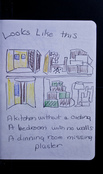 Looks Like this
A kitchen without a ceiling
A bedroom with no walls
A dining room missing
plaster